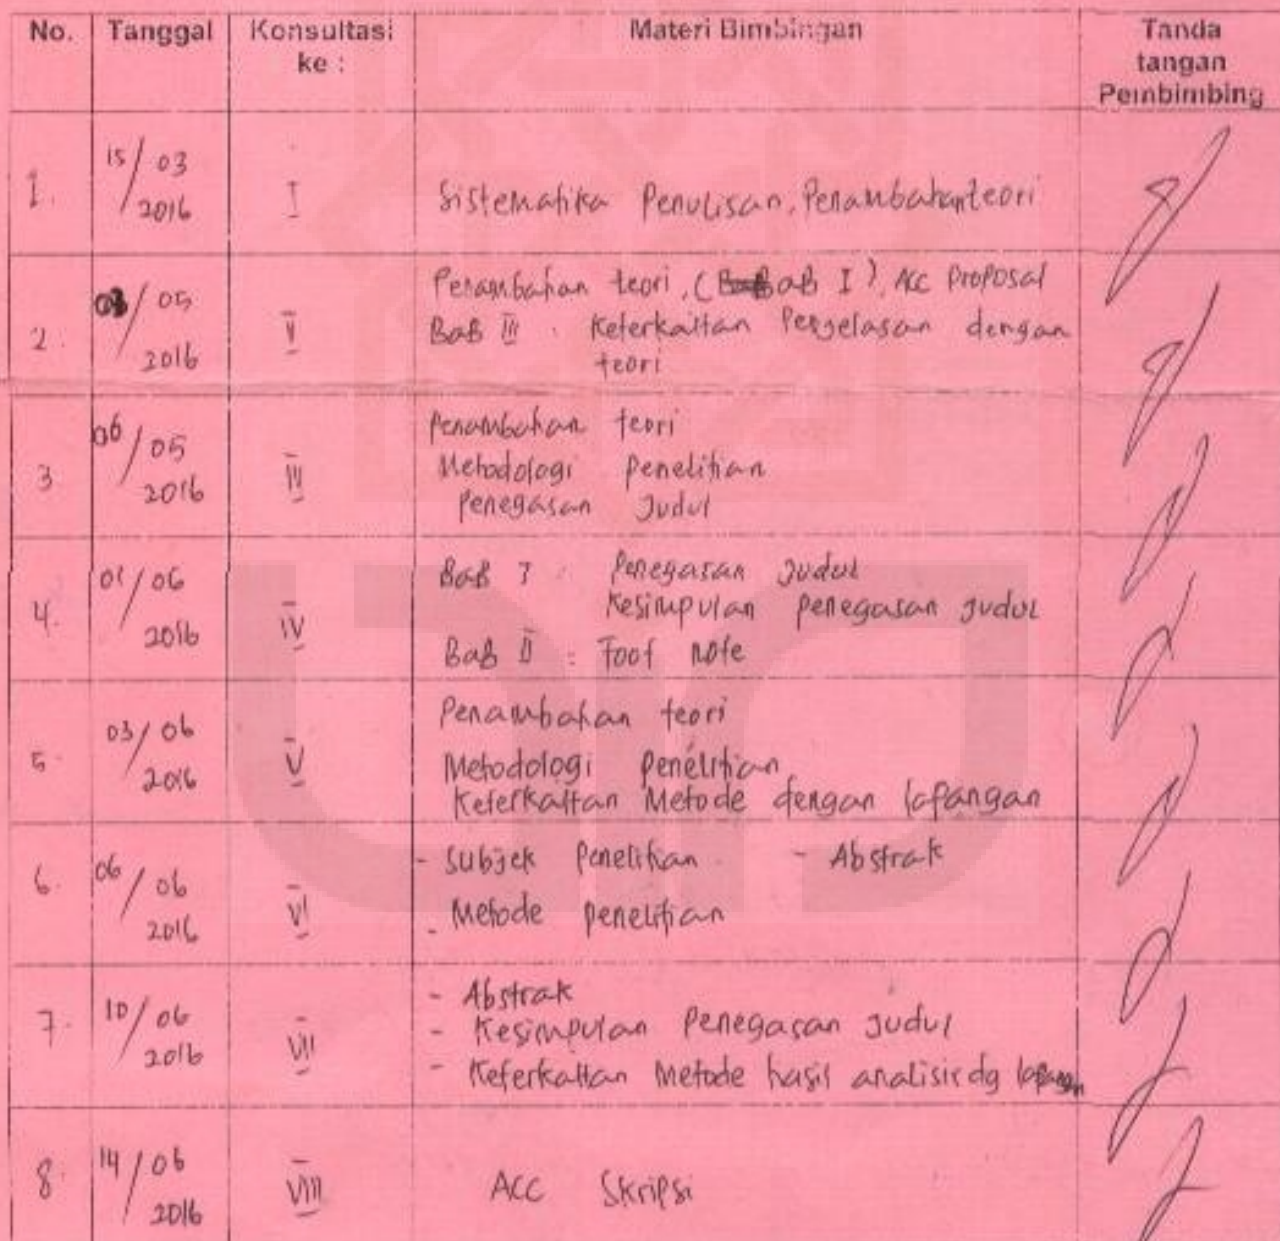 No. Tanggal Konsultasi ke : Materi Bimbingan Tanda tangan Pembimbing
1. 15/03 2016 I Sistematika Penulisan, Penambahan teori
2. 05 2016 II Penambahan teori, (Bab I), Acc Proposal
Bab III : Keterkaitan Penjelasan dengan
teori
3 06/05 2016 III Penambahan teori
Metodologi Penelitian
Penegasan Judul
4. 01/06 2016 IV Bab I : Penegasan Judul
Kesimpulan penegasan Judul
Bab II : Foot note
5. 03/06 2016 V Penambahan teori
Metodologi Penelitian
Keterkaitan Metode dengan lapangan
6. 06/06 2016 VI - Subjek Penelitian - Abstrak
- Metode Penelitian
7. 10/06 2016 VII - Abstrak
- Kesimpulan Penegasan Judul
- Keterkaitan Metode hasil analisis dg lapangan
8. 14/06 2016 VIII ACC Skripsi